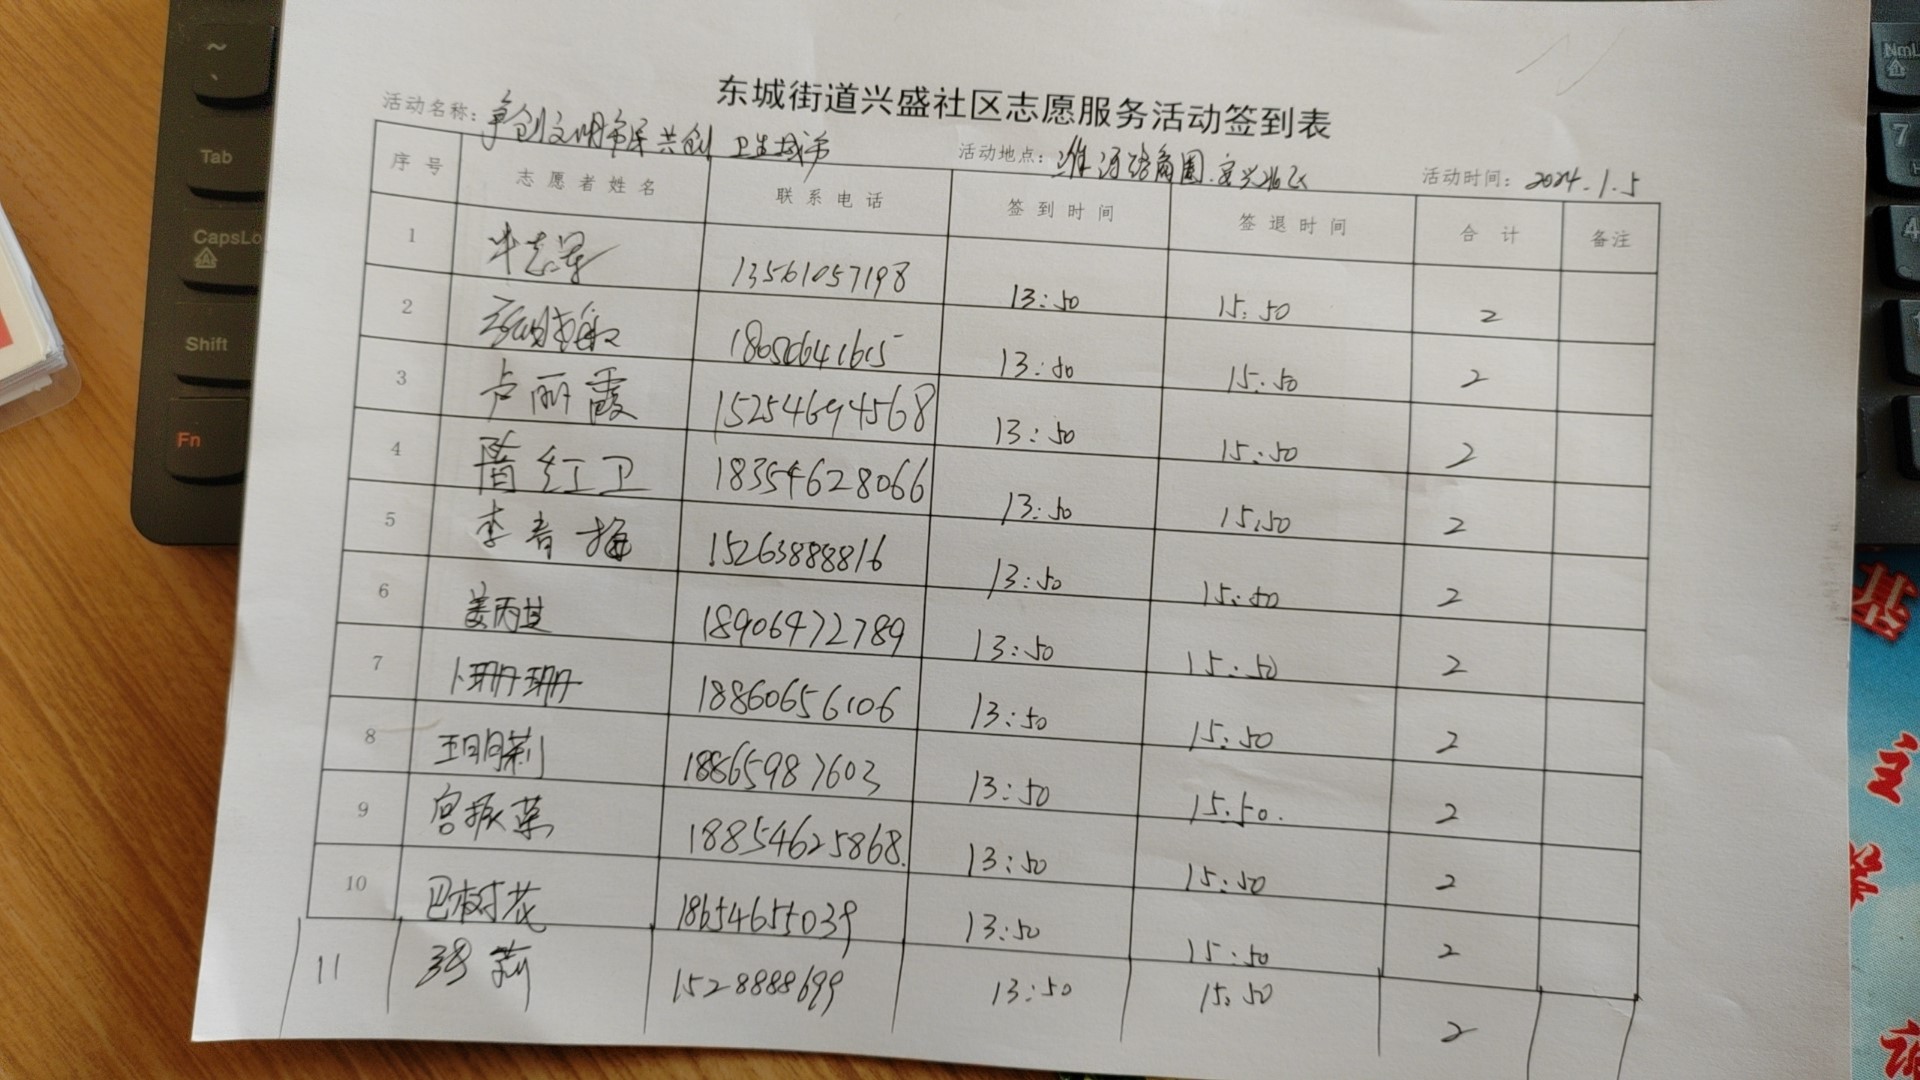 东城街道兴盛社区志愿服务活动签到表
活动名称: 争创文明市民共创 卫生城市 活动地点: 潍河路商圈. 活动时间: 2024.1.5
序号 志愿者姓名 联系电话 签到时间 签退时间 合计 备注
1 13561057198 13:50 15:50 2
2 13:50 15:50 2
3 卢丽霞 15254694568 13:50 15:50 2
4 隋红卫 18354628066 13:50 15:50 2
5 李春梅 15263888816 13:50 15:50 2
6 姜丙芝 18906472789 13:50 15:50 2
7 卜珊珊 18860656106 13:50 15:50 2
8 王明莉 18865987603 13:50 15:50. 2
9 宫振荣 18854625868. 13:50 15:50 2
10 巴树花 18654655039 13:50 15:50 2
11 莉 15288888699 13:50 15:50 2
~
Tab
CapsLo
Shift
Fn
NmL
7
4
基
主